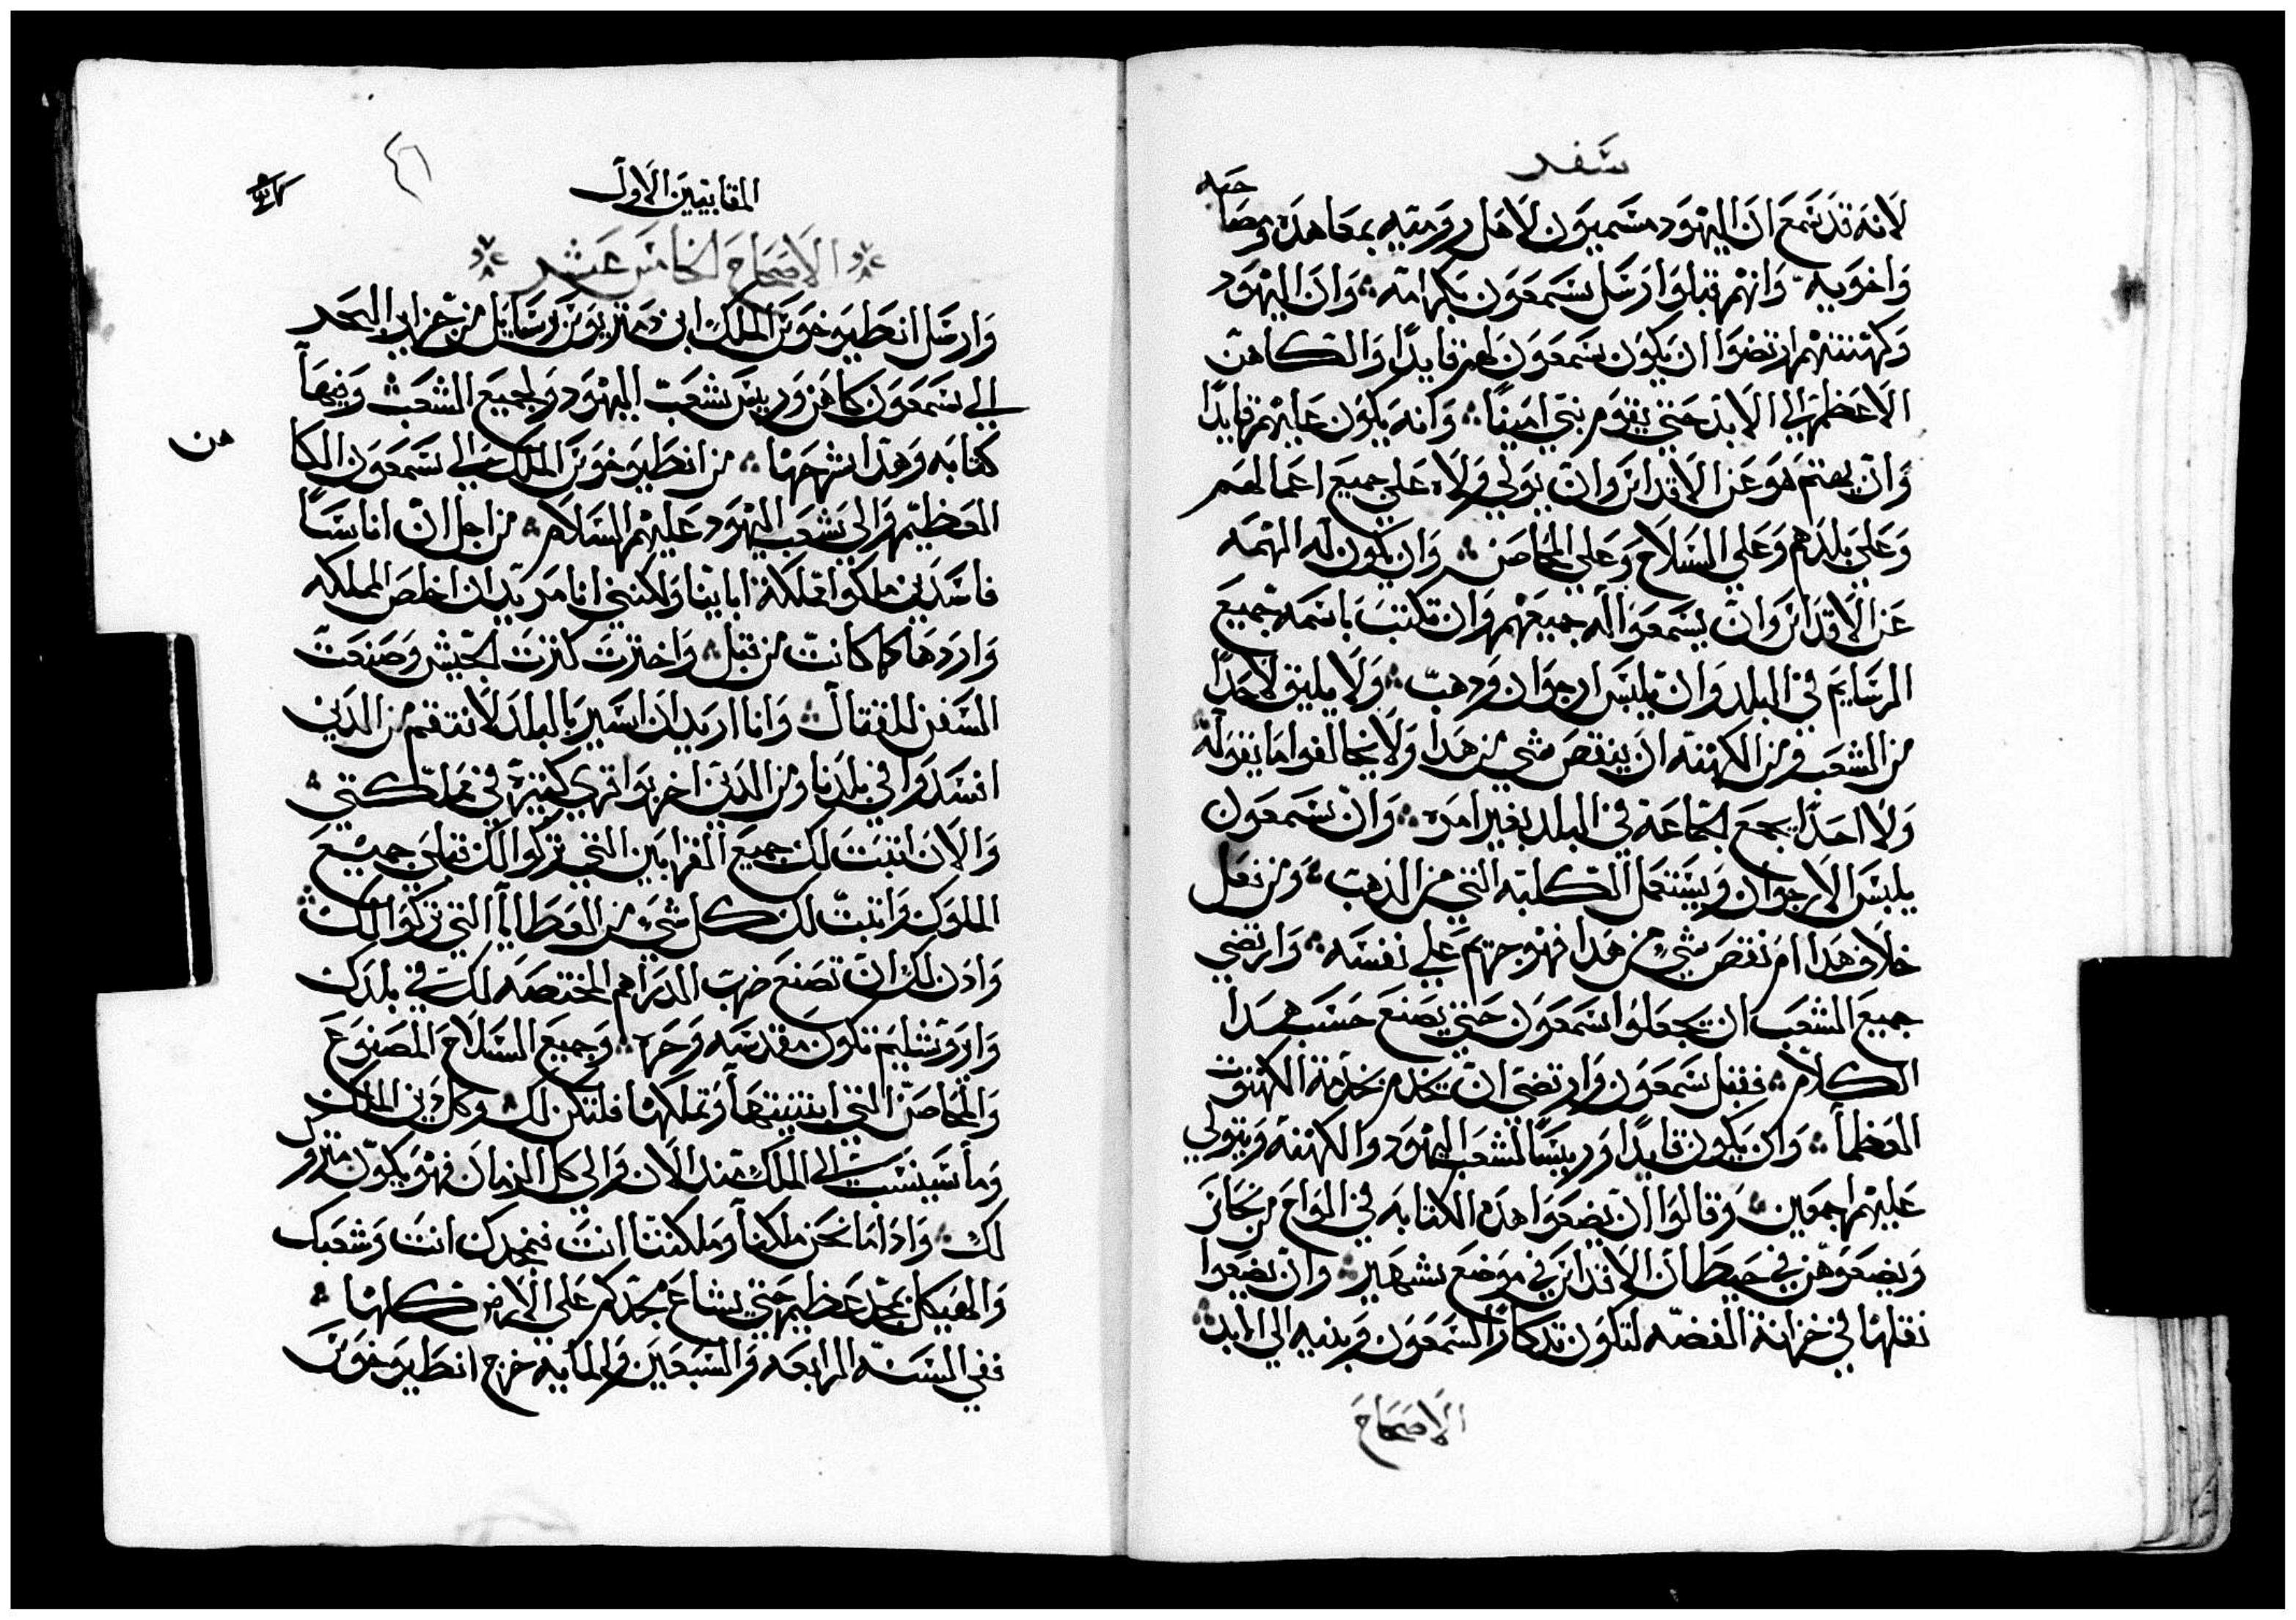 سفر
لانه قد سمع ان اليهود مسميون لاهل روميه بمعاهده ومصاحبه
واخويه وانهم قبلوا رسل سمعون بكرامه ۞ وان اليهود
وكهنتهم ارتضوا ان يكون سمعون لهم قايدًا والكاهن
الاعظم الي الابد حتي يقوم نبي امينًا ۞ وانه يكون عليهم قايدًا
وان يهتم هو عن الاقداس وان يولي ولاه علي جميع اعمالهم
وعلي بلدهم وعلي السلاح وعلي المحاصن ۞ وان يكون له الهمه
عن الاقداس وان يسمعوا له جميعهم وان تكتب باسمه جميع
المرسايم في البلد وان يلبس ارجوان ودهب ۞ ولا يليق لاحدًا
من الشعب ومن الكهنه ان ينقص شي من هدا ولا يخالفوا ما يقوله ۞
ولا احدًا يجمع لجماعة في البلد بغير امره ۞ وان سمعون
يلبس الارجوان ويستعمل الكلبه التي من الذهب ۞ ومن فعل
خلاف هدا ام نقص شي من هدا فهو جرم علي نفسه ۞ وارتضي
جميع الشعب ان يجعلوا سمعون حتي يصنع حسب هدا
الكلام ۞ فقبل سمعون وارتضي ان يخدم خدمة الكهنوت
العظما ۞ وان يكون قايدًا وريسًا لشعب اليهود والكهنه ويتولي
عليهم اجمعين ۞ وقالوا ان يضعوا هده الكتابه في الواح من نحاس
ويضعوهن في حيطان الاقداس في موضع شهير ۞ وان يضعوا
نقلها في خزانة الفضه لتكون تدكارًا لسمعون وبنيه الي الابد ۞
الاصحاح
المقابيين الاول
٤٦
الاصحاح الخامس عشر
وارسل انطيوخوس الملك ابن دمتريوس رسايل من جزاير البحر
الي سمعون كاهن وريس شعب اليهود ولجميع الشعب وفيها
كتابه وهدا شرحها ۞ من انطيوخوس الملك الي سمعون الكاهن
العظيم والي شعب اليهود عليهم السلام ۞ من اجل ان اناسًا
فاسدين ملكوا مملكة اباينا ولكنني انا مريد ان اخلص المملكه
واردها كما كانت من قبل ۞ واخترت كثرت الجيش وصنعت
السفن للقتال ۞ وانا اريد ان اسير بالبلد لانتقم من الدين
افسدوا في بلدنا ومن الدين اخربوا قري كثيرة في مملكتي ۞
والان اثبت لك جميع القرابين التي تركوا لك قبلي جميع
الملوك واثبت لك كل شي من العطايا التي تركوا لك ۞
وادن لك ان تصنع ضرب الدراهم المختصه لك في بلدك
واروشليم تكون مقدسه وحره ۞ وجميع السلاح المصنوع
والمحاصن التي ابنيتها وتملكها فلتكن لك ۞ وكل دين الملك
وما سينسب الي الملك مند الان والي كل الزمان فهو يكون متروك
لك ۞ وادا ما نحن ملكنا مملكتنا انت فنمجدك انت وشعبك
والهيكل بمجد عظيم حتي يشاع مجدكم علي الارض كلها ۞
ففي السنه الرابعه والسبعين والمايه خرج انطيوخوس